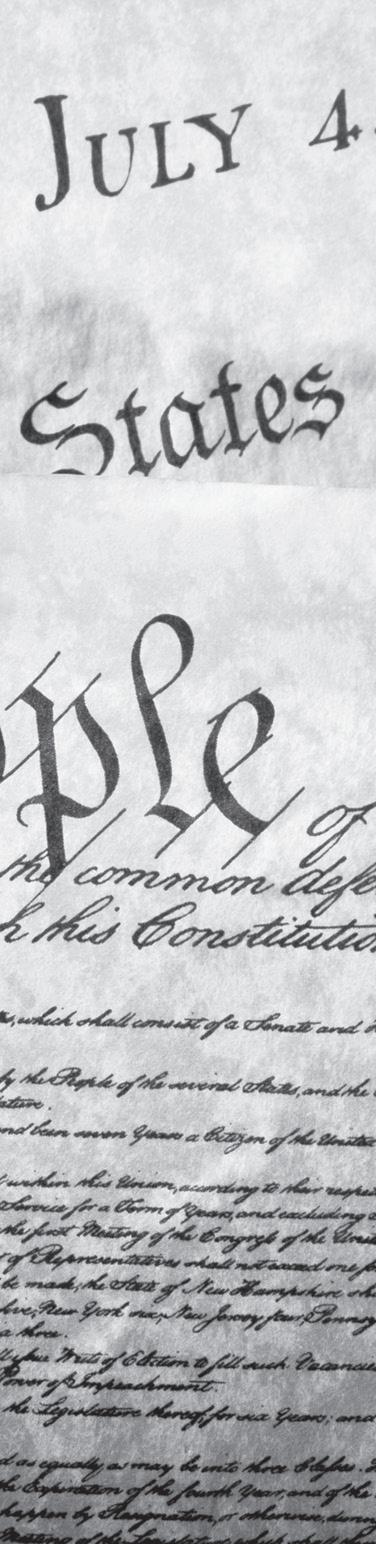 JULY 4.
States
ople of
the common defe
h this Constitution
which shall consist of a Senate and
by the People of the several States, and the
lature.
and been seven Years a Citizen of the United
within this Union, according to their respec
Service for a Term of Years, and excluding
the first Meeting of the Congress of the Unite
of Representatives shall not exceed one fo
be made, the State of New Hampshire sha
five, New York six, New Jersey four, Pennsy
a three.
Writs of Election to fill such Vacancies
Power of Impeachment.
the Legislature thereof, for six Years; and
d as equally as may be into three Classes.
the Expiration of the fourth Year, and of the
happen by Resignation, or otherwise, durin
Meeting of the Legislature, which shall the